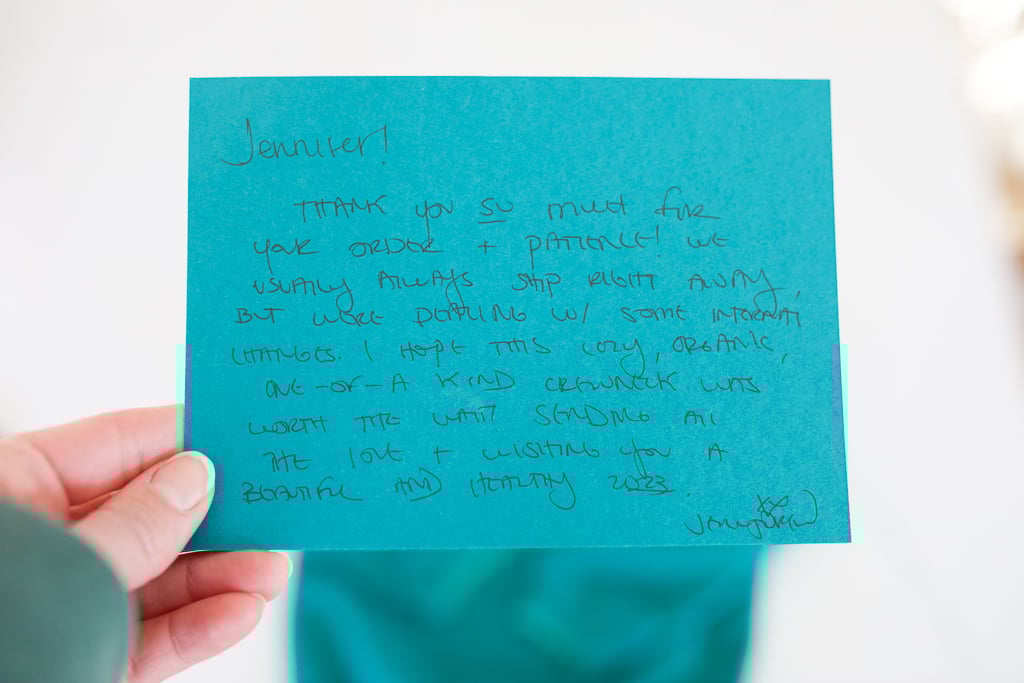 Jennifer!
THANK you SO much for
your ORDER + PATIENCE! WE
USUALLY ALWAYS SHIP RIGHT AWAY,
BUT WERE DEALING W/ SOME INTERNAL
CHANGES. I HOPE THIS COZY, ORGANIC,
ONE-OF-A KIND CREWNECK WAS
WORTH THE WAIT SENDING All
THE love + WISHING you A
BEAUTIFUL AND HEALTHY 2023.